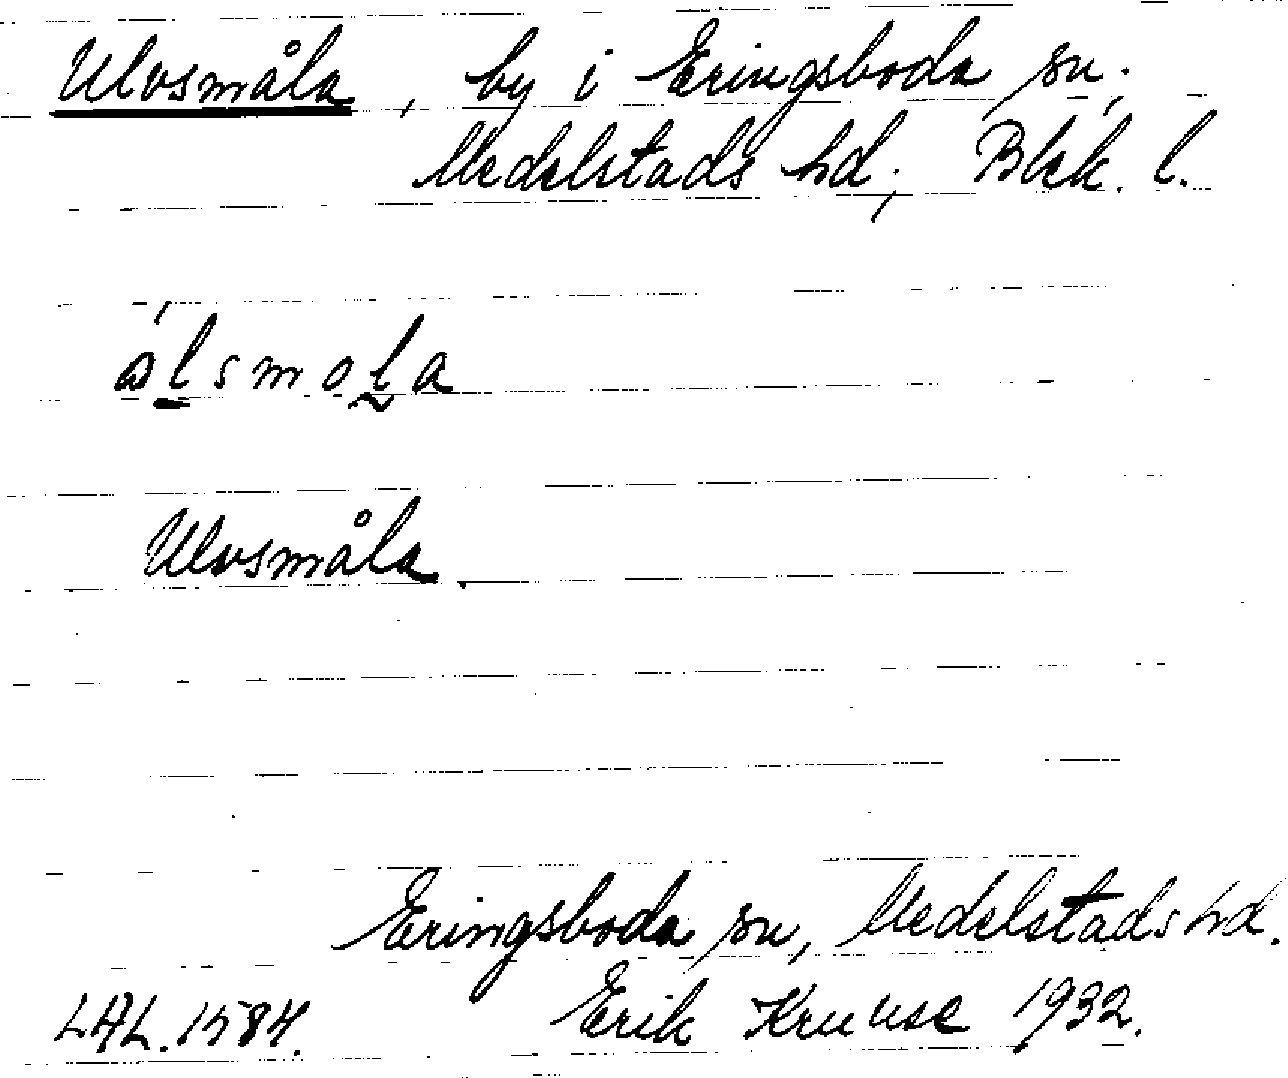 Ulvsmåla, by i Eringsboda sn;
Medelstads hd; Blek. l.
ålsmola
Ulvsmåla.
Eringsboda sn, Medelstads hd.
LAL. 1584. Erik Kruuse 1932.